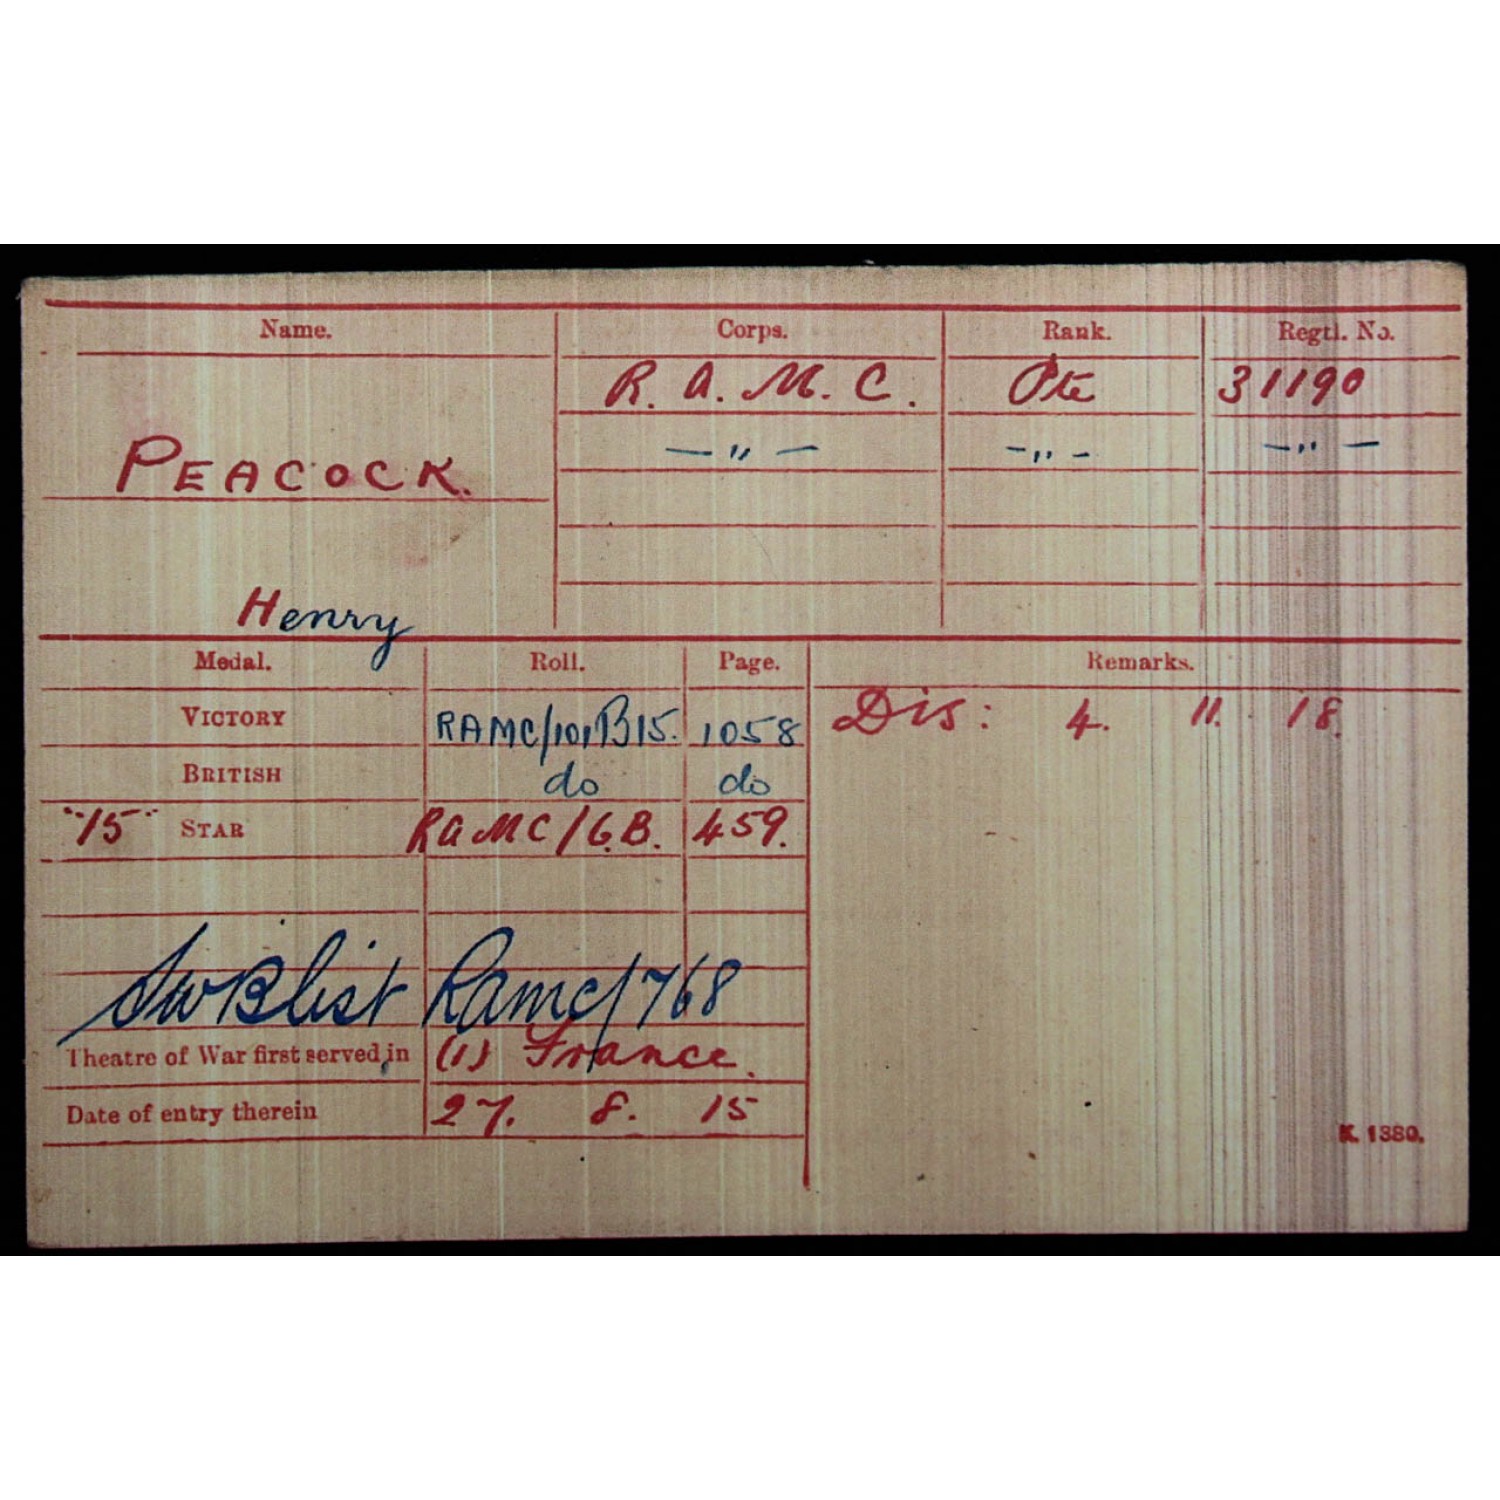 Name. Corps. Rank. Regtl. No.
R. A. M. C. Pte 31190
PEACOCK. — " — - " - — " —
Henry
Medal. Roll. Page. Remarks.
VICTORY RAMC/101B15. 1058 Dis: 4. 11. 18.
BRITISH do do
"15" STAR RAMC/6.B. 459.
SWB list RAMC/768
Theatre of War first served in (1) France.
Date of entry therein 27. 8. 15
K. 1380.